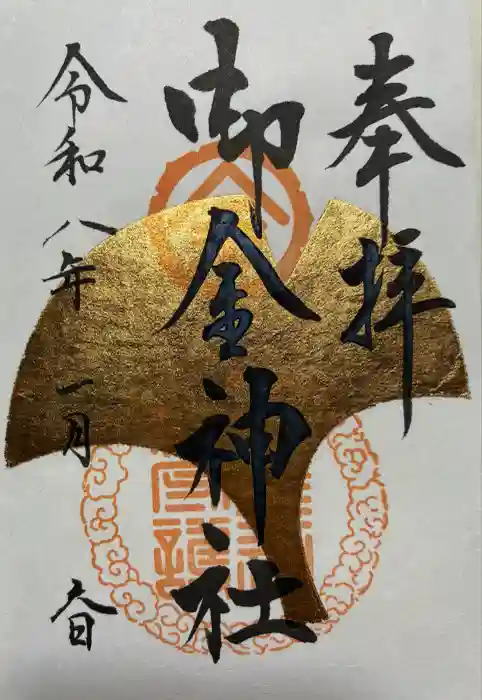 奉拝
御金神社
令和八年 一月 春日